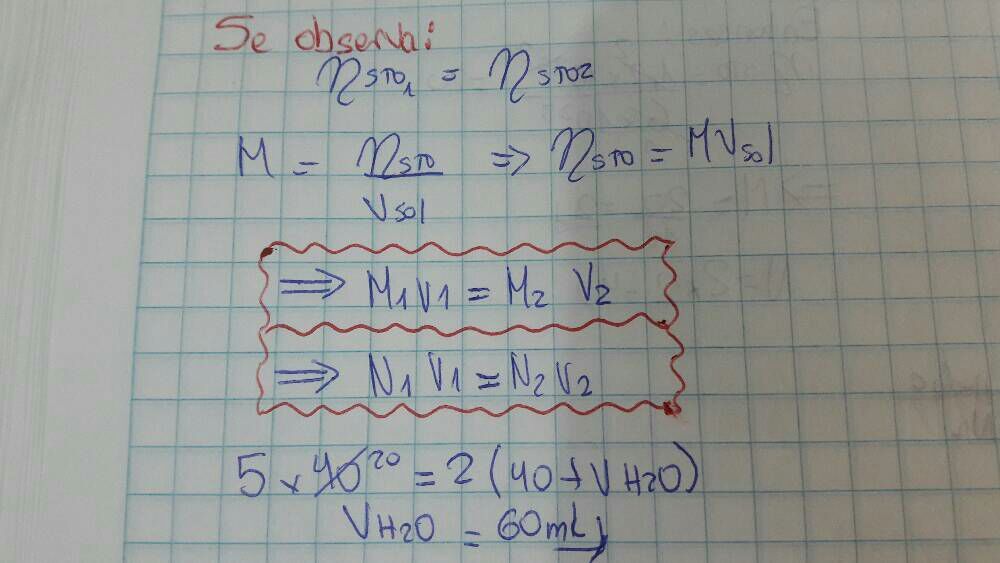 Se observa:
ηSTO1 = ηSTO2
M = ηSTO / Vsol ⇒ ηSTO = MVsol
⇒ M1V1 = M2 V2
⇒ N1 V1 = N2 V2
5 x 40 20 = 2 (40 + VH2O)
VH2O = 60mL